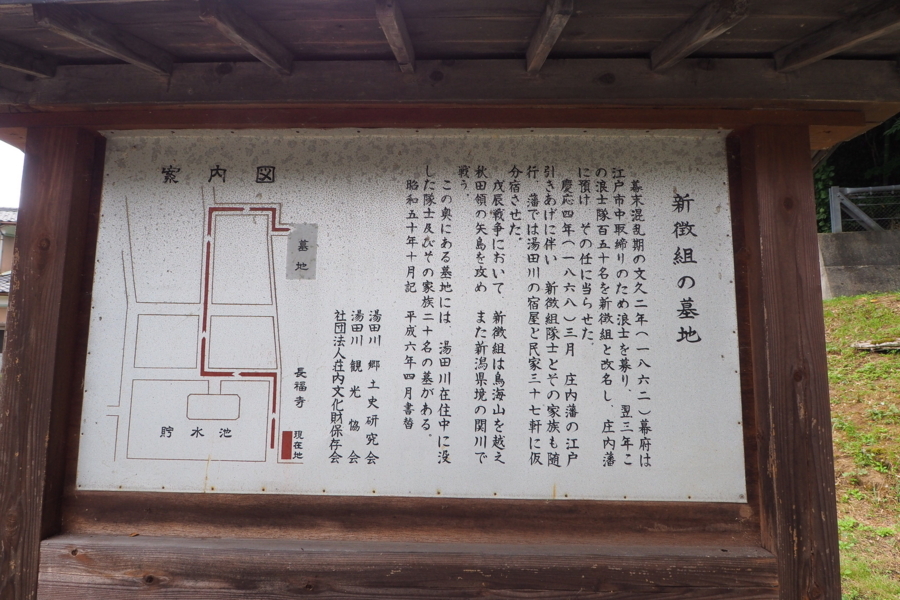 新徴組の墓地
幕末混乱期の文久二年(一八六二)幕府は
江戸市中取締りのため浪士を募り 翌三年こ
の浪士隊百五十名を新徴組と改名し、庄内藩
に預け その任に当らせた。
慶応四年(一八六八)三月 庄内藩の江戸
引きあげに伴い 新徴組隊士とその家族も随
行 藩では湯田川の宿屋と民家三十七軒に仮
分宿させた。
戊辰戦争において 新徴組は鳥海山を越え
秋田領の矢島を攻め また新潟県境の関川で
戦う。
この奥にある墓地には 湯田川在住中に没
した隊士及びその家族二十名の墓がある。
昭和五十年十月記 平成六年四月書替
湯田川 郷土史研究会
湯田川 観光協会
社団法人荘内文化財保存会
案内図
墓地
長福寺
現在地
貯水池